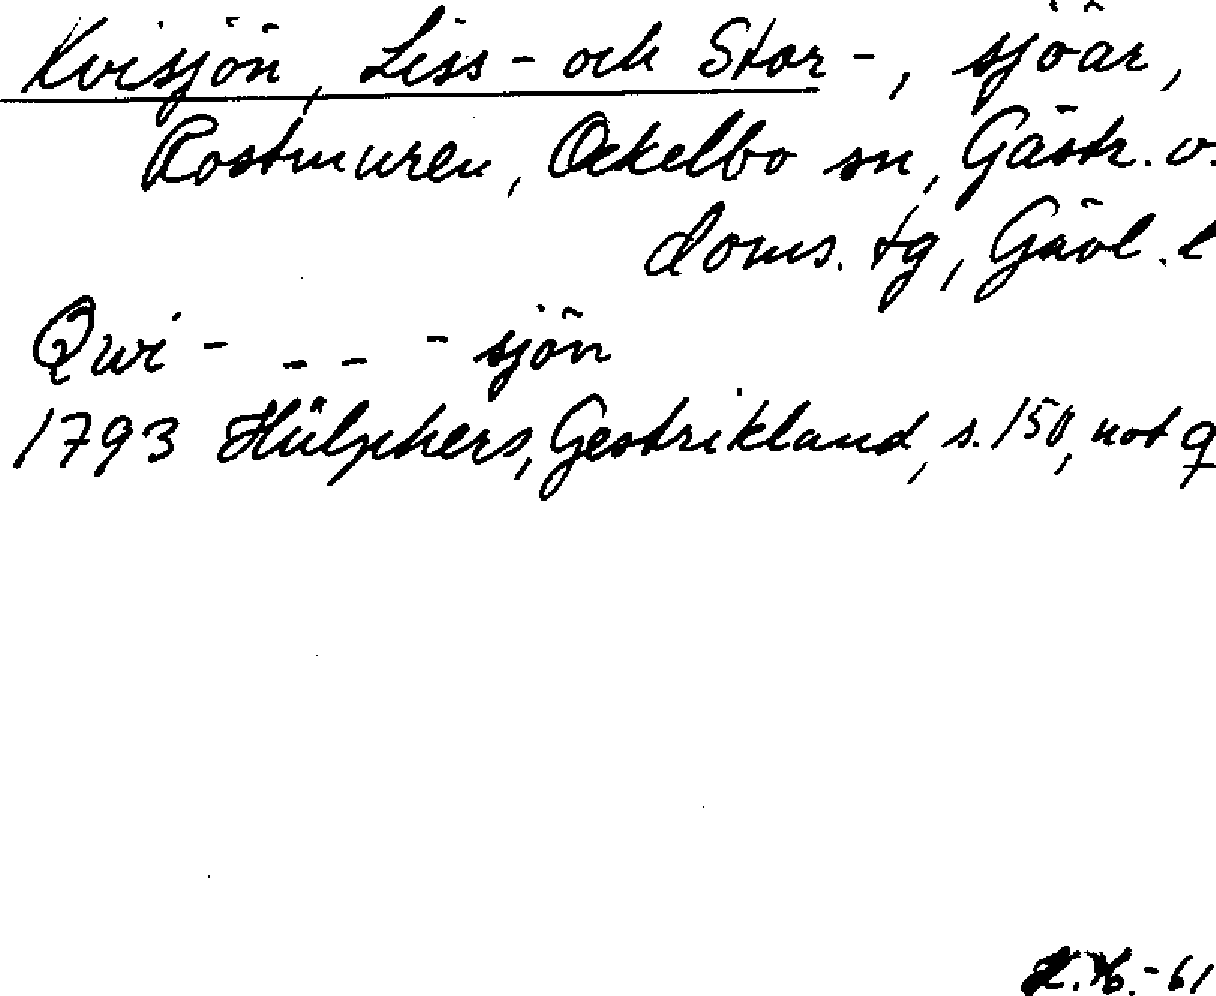 Kvisjön, Liss- och Stor-, sjöar,
Rostmuren, Ockelbo sn, Gästr. v.
doms. tg, Gävl. l
Qwi - - - - sjön
1793 Hülphers, Gestrikland, s. 150, not q
H.-61